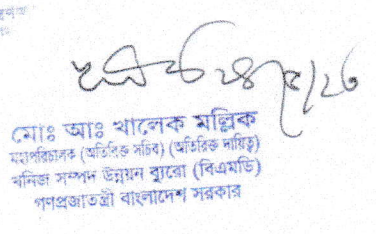 মোঃ আঃ খালেক মল্লিক
মহাপরিচালক (অতিরিক্ত সচিব) (অতিরিক্ত দায়িত্ব)
খনিজ সম্পদ উন্নয়ন ব্যুরো (বিএমডি)
গণপ্রজাতন্ত্রী বাংলাদেশ সরকার